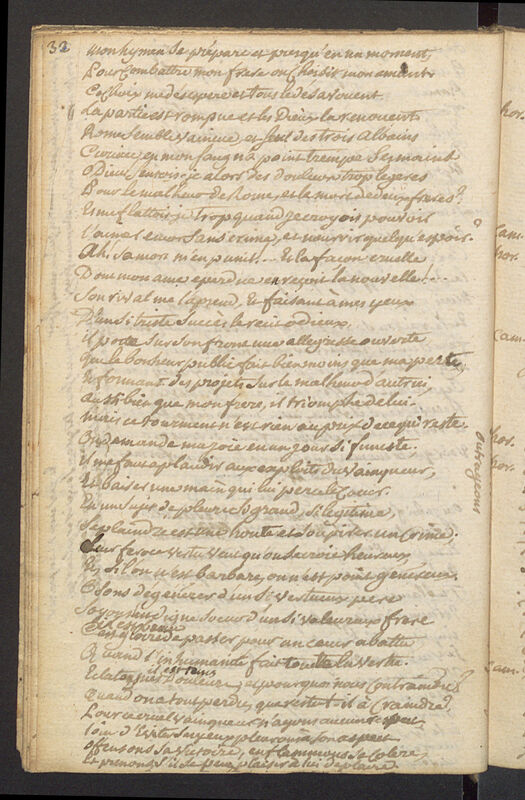 32
Mon hymen se prépare et presqu'en un moment,
Pour Combattre mon frere on Choisit mon amant.
Ce choix me desespere et tous le desavouent
La partie est rompue et les Dieux la renouent
Rome Semble Vaincue, et seul des trois Albains
Curiace en mon sang n'a point trempé Ses mains
O Dieux Sentois-je alors des douleurs trop legeres
Pour le malheur de Rome, et la mort de deux freres?
Et me flattois-je trop quand je croyois pouvoir
L'aimer encor Sans crime, et nourrir quelqu'espoir?
Ah! Sa mort m'en punit!... Et la façon cruelle
Dont mon ame eperdue en reçoit la nouvelle!...
Son rival me l'aprend, Et faisant a mes yeux
D'un Si triste Succès le recit odieux,
il porte Sur Son front une allegresse ouverte
Que le bonheur public fait bien moins que ma perte,
Et formant des projets Sur le malheur d'autrui,
aussi bien que mon frere, il triomphe de lui.
mais ce tourment n'est rien au prix de ce qui reste.
On demande ma joie en un jour Si funeste.
il me faut aplaudir aux exploits du Vainqueur,
Et baiser une main qui lui perce le Coeur.
En un Sujet de pleurs Si grand, Si legitime,
Se plaindre est une honte et Soupirer un Crime.
Leur feroce Vertu Veut qu'on Se croie heureux,
Et Si l'on n'est barbare, on n'est point genereux.
Osons degenerer d'un Si Vertueux pere
Soyons indigne Soeur d'un Si Valeureux frere
de passer pour un coeur abattu
Quand l'inhumanité fait toute la Vertu.
Eclatez Douleurs, et pourquoi nous Contraindre?
Quand on a tout perdu, que reste-t-il à Craindre?
Pour ce cruel Vainqueur n'ayons aucun respect
Loin d'Eviter Ses yeux pleurons à Son aspect
Offensons Sa Victoire, enflammons Sa Colere,
Et prenons, S'il Se peut, plaisir à lui deplaire